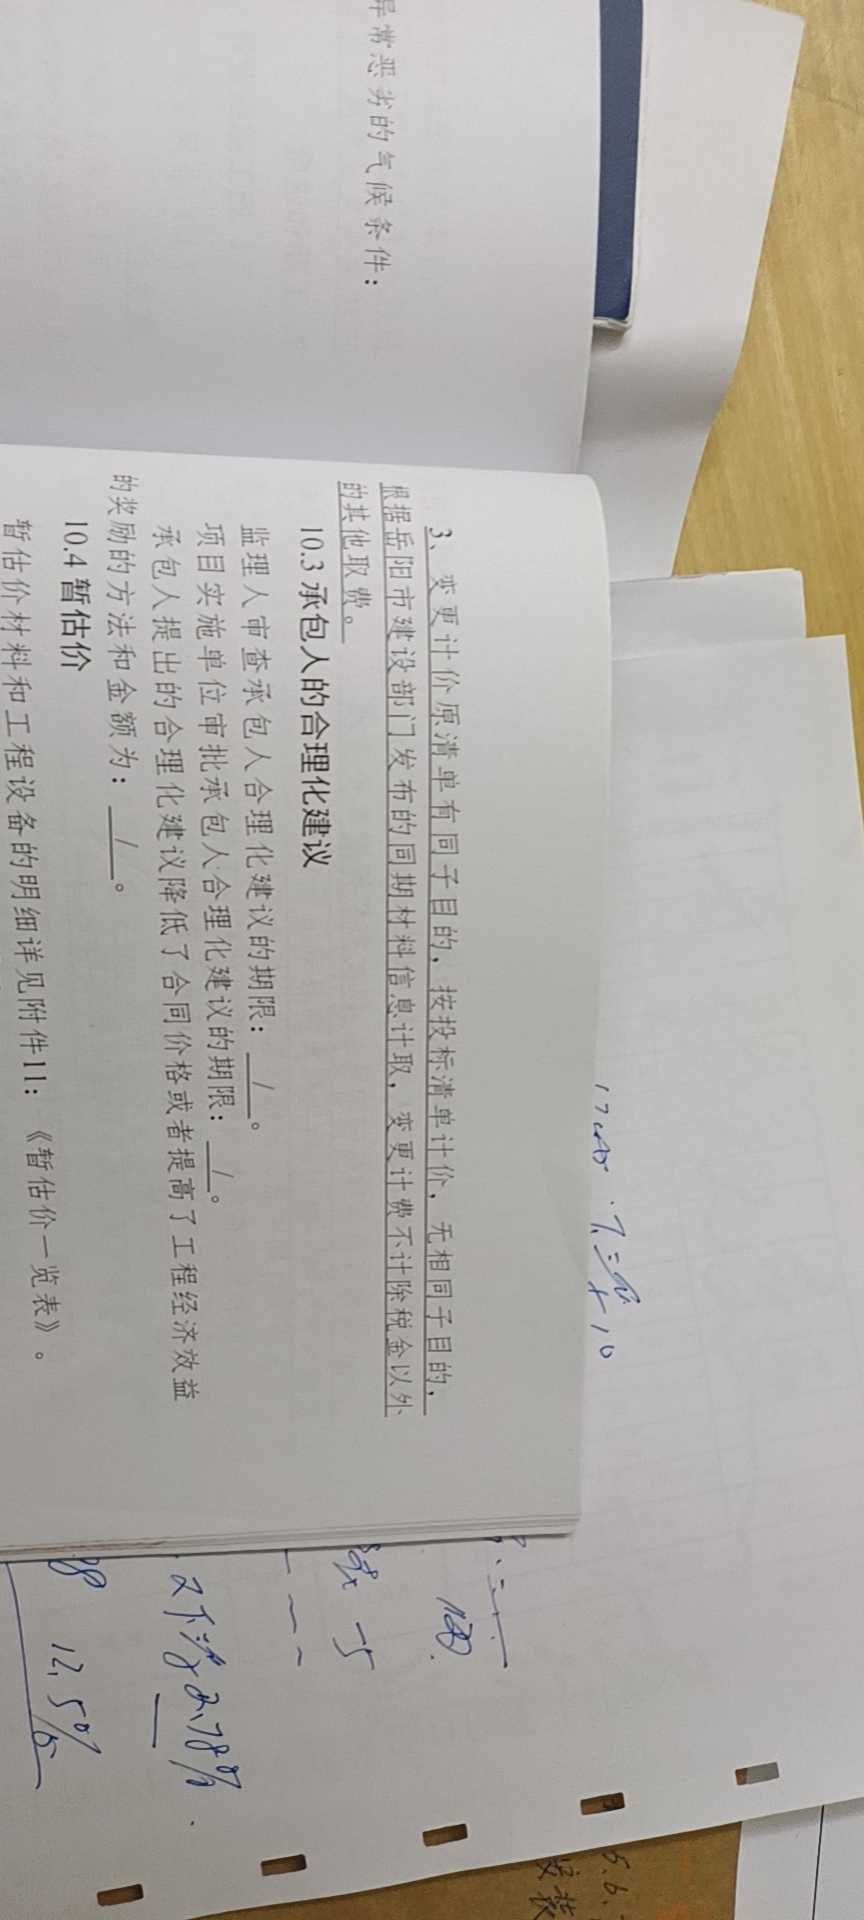 异常恶劣的气候条件：
3、变更计价原清单有同子目的，按投标清单计价，无相同子目的，
根据岳阳市建设部门发布的同期材料信息计取，变更计费不计除税金以外
的其他取费。
10.3 承包人的合理化建议
监理人审查承包人合理化建议的期限：/。
项目实施单位审批承包人合理化建议的期限：/。
承包人提出的合理化建议降低了合同价格或者提高了工程经济效益
的奖励的方法和金额为：/。
10.4 暂估价
暂估价材料和工程设备的明细详见附件11：《暂估价一览表》。
2.78%
12.5%